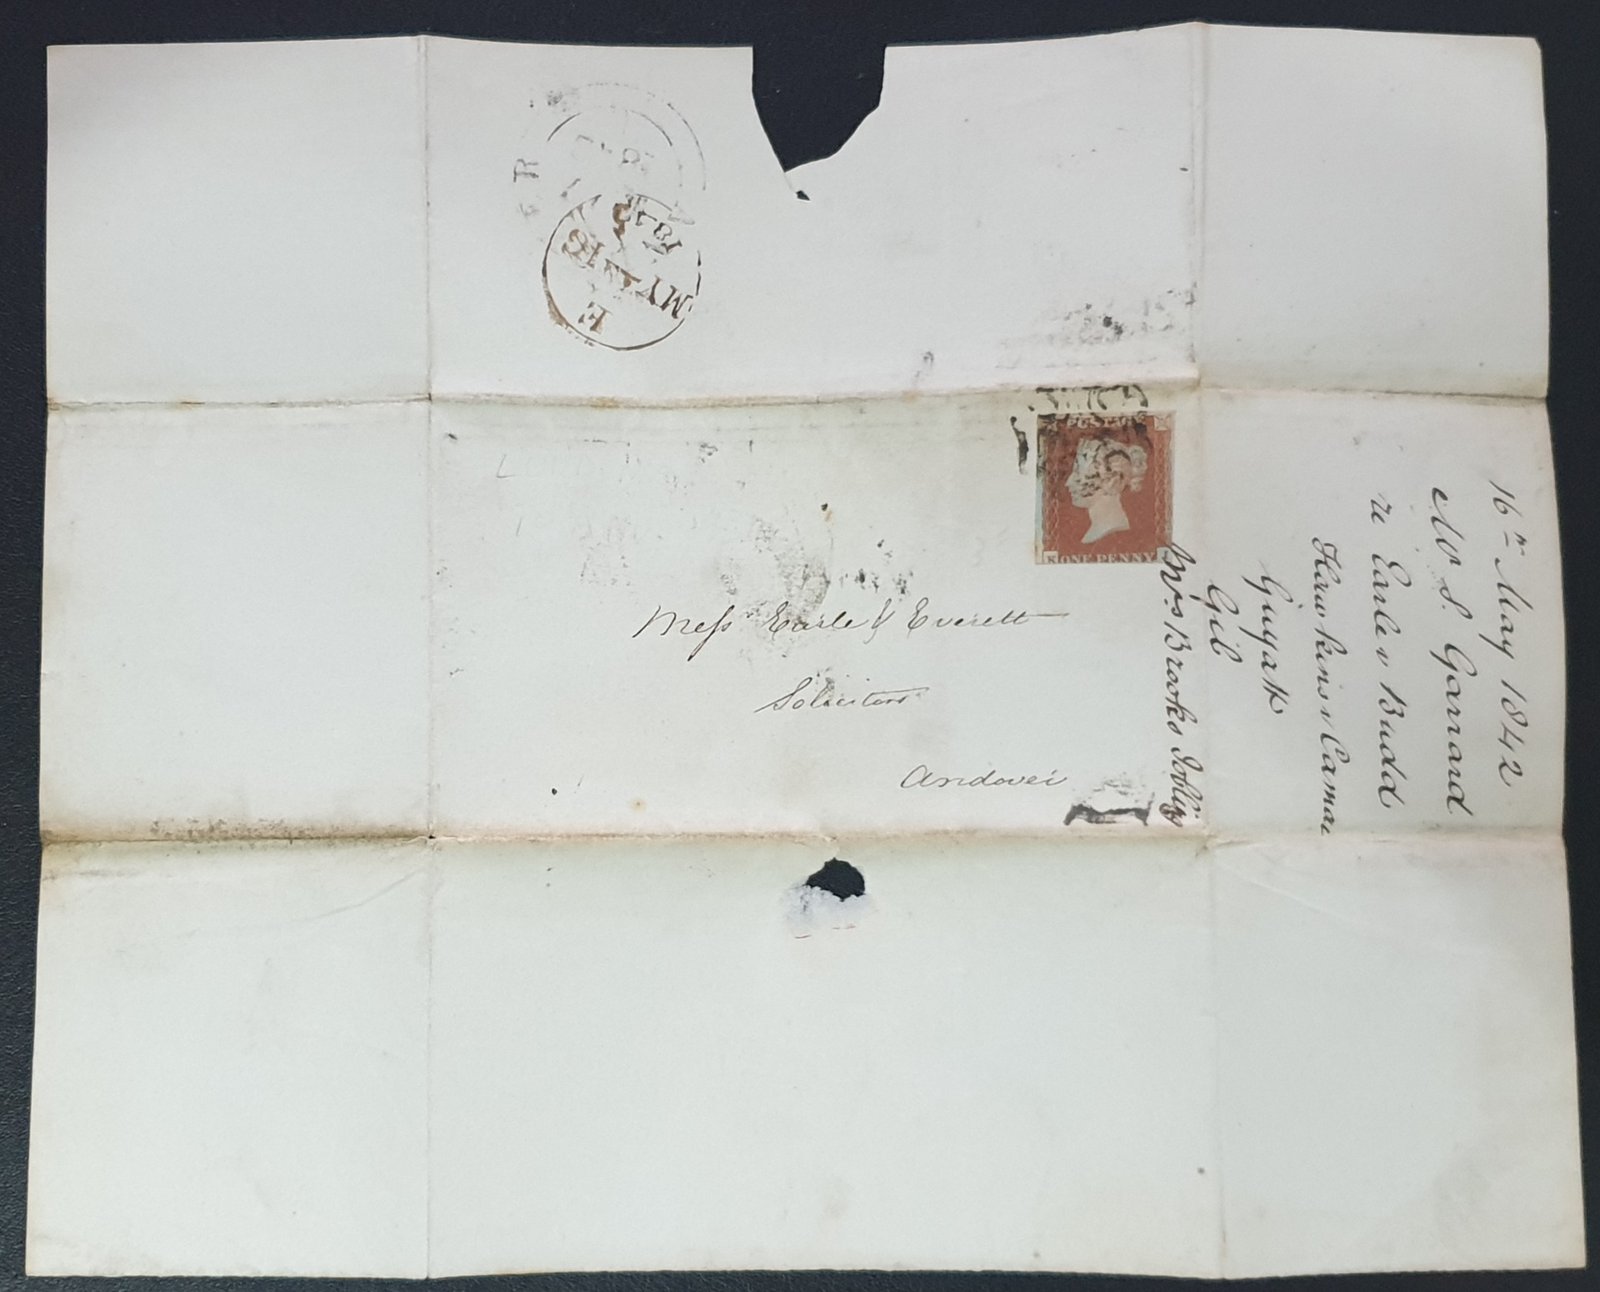 E
MY 16
1842
POSTAGE
K ONE PENNY
Mess Earle & Everett
Solicitors
Andover
16th May 1842
Mr S. Garrard
re Earle v Budd
Hawkins v
Gil
Mrs Brooks